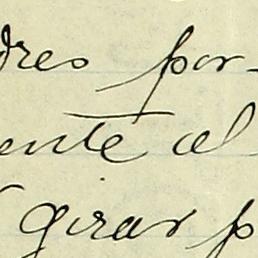 dres por-
ente al
girar p